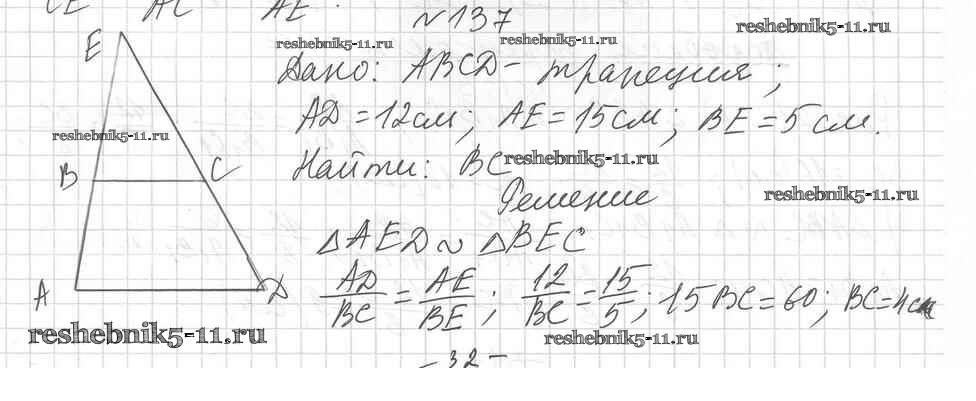 CE AC AE
№137
reshebnik5-11.ru
reshebnik5-11.ru
reshebnik5-11.ru
E
Дано: ABCD - трапеция;
AD = 12см; AE = 15см; BE = 5см.
reshebnik5-11.ru
Найти: BC
reshebnik5-11.ru
B
C
Решение
reshebnik5-11.ru
△AED ~ △BEC
A
D
AD/BC = AE/BE; 12/BC = 15/5; 15BC = 60; BC = 4см
reshebnik5-11.ru
reshebnik5-11.ru
- 32 -